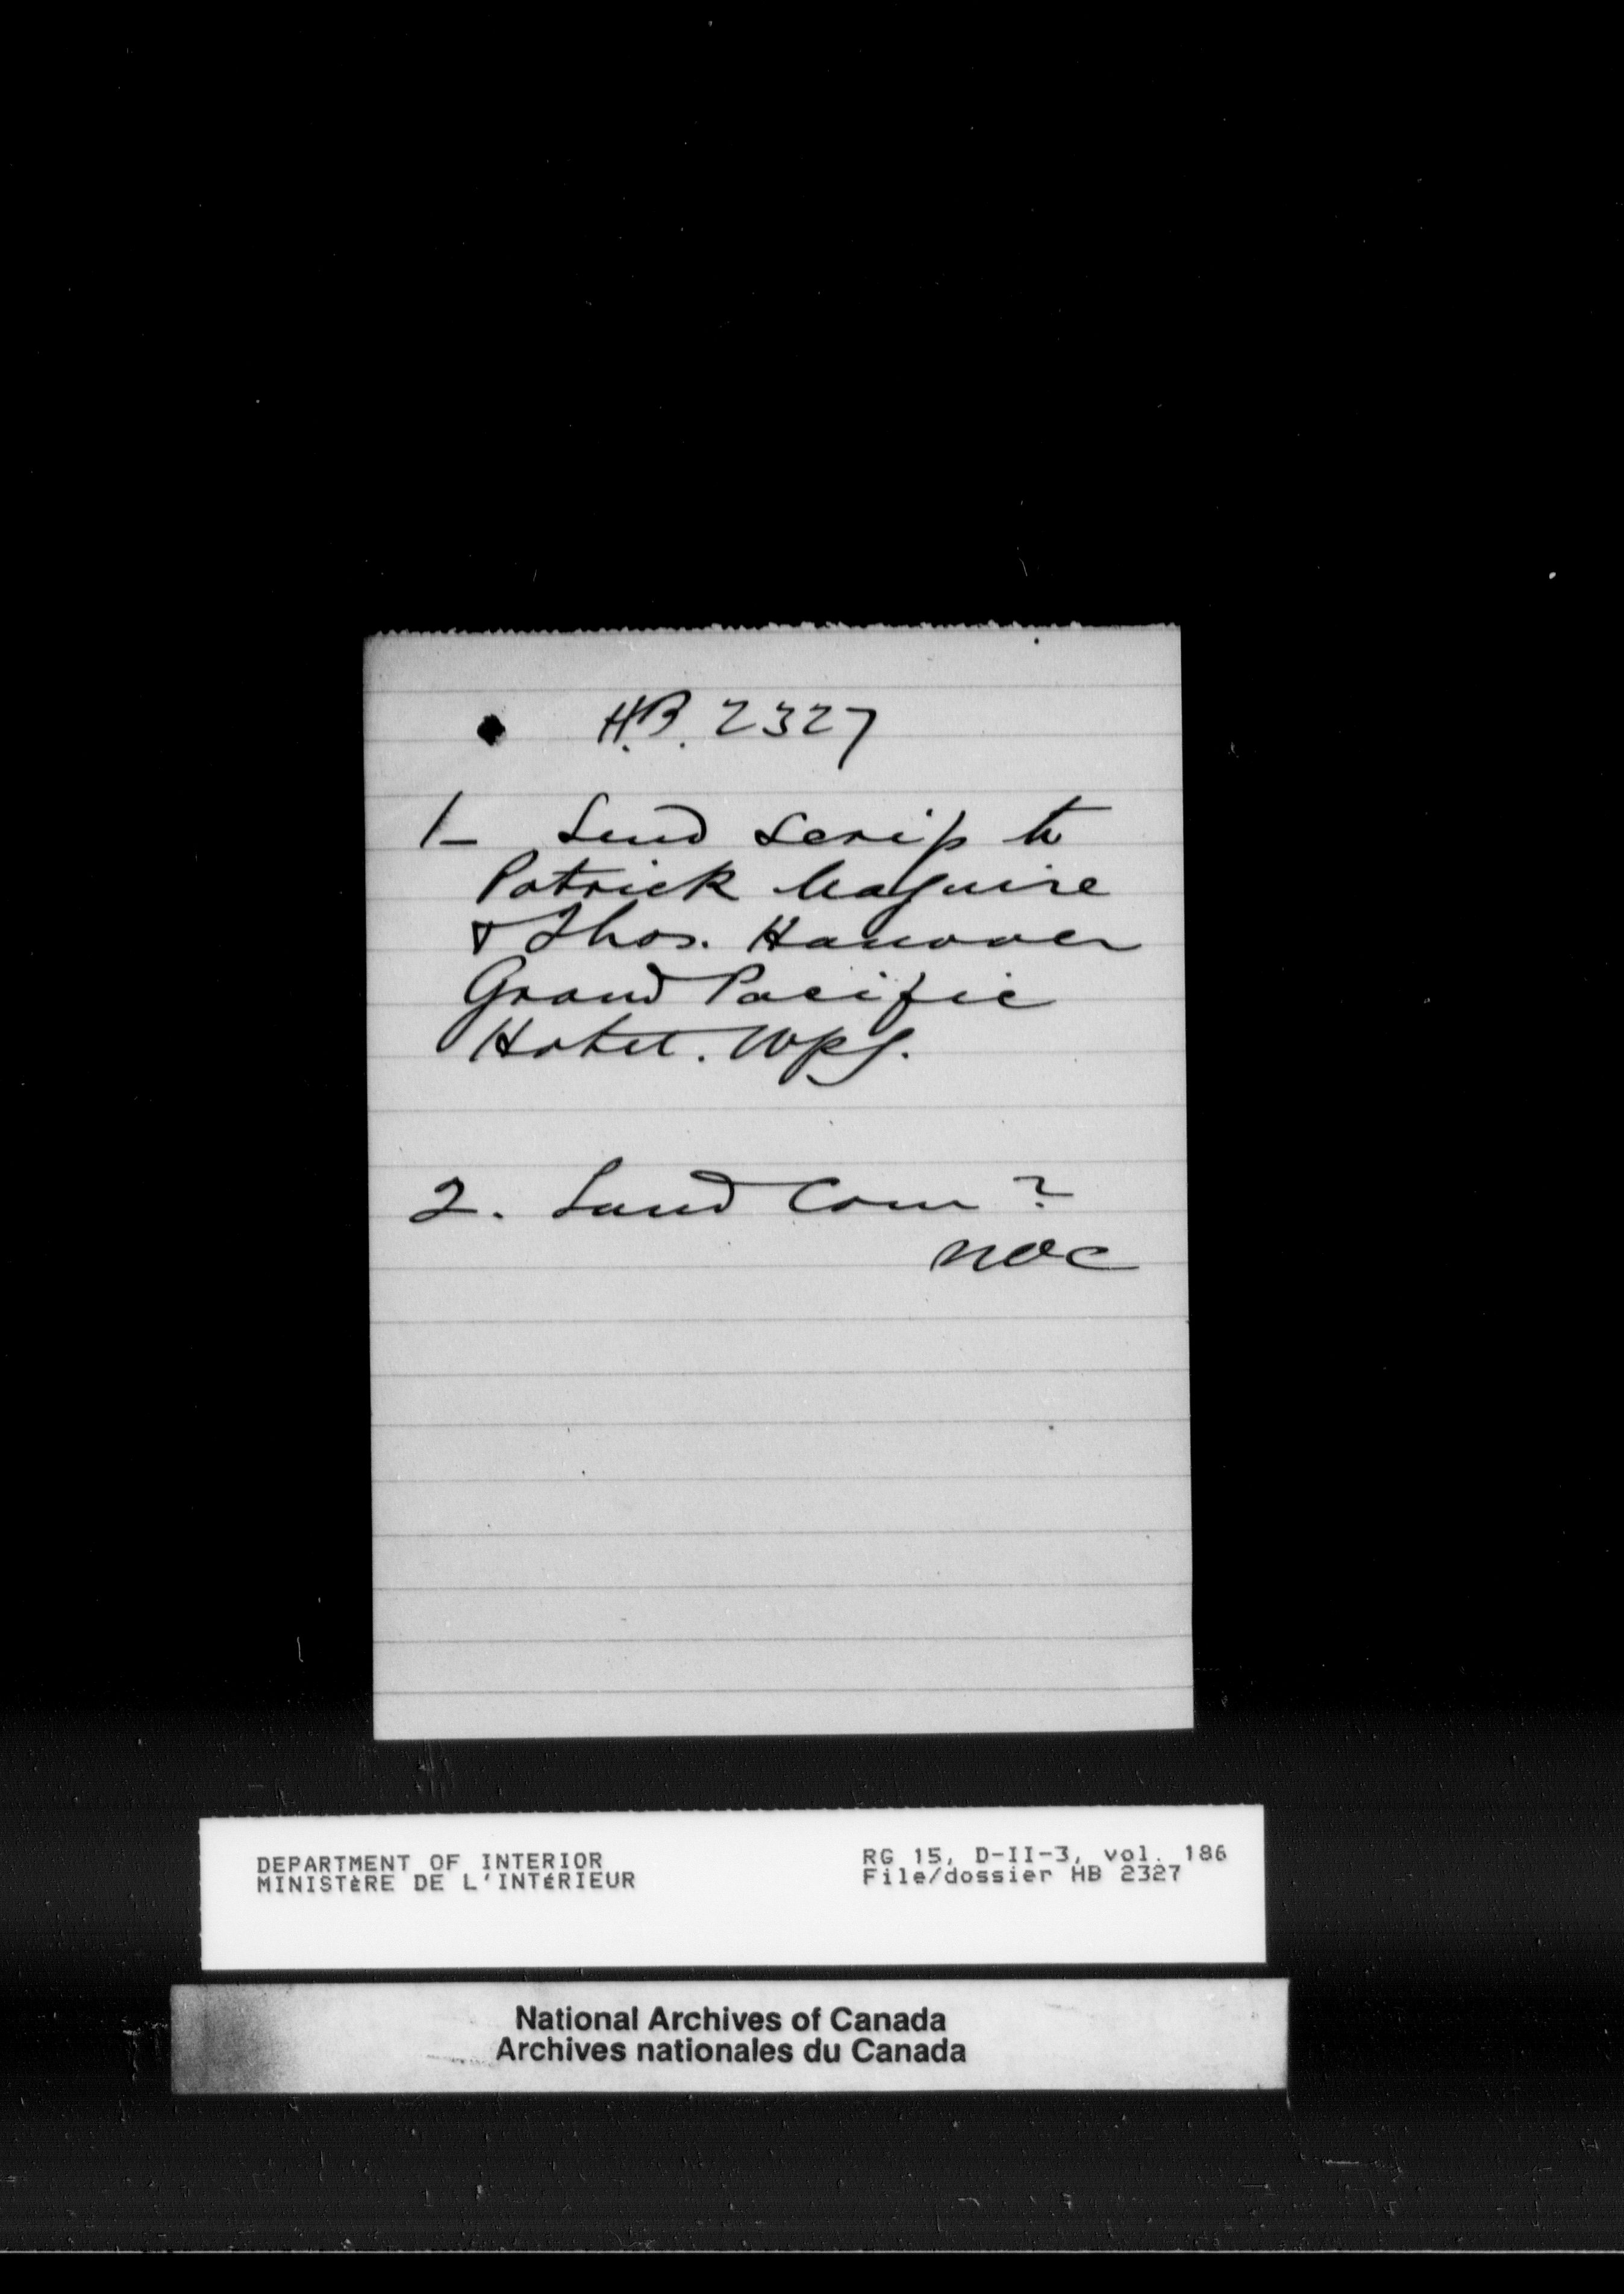 H.B. 2327
1- Send Scrip to
Patrick Maguire
& Thos. Hanover
Grand Pacific
Hotel. Wpg.
2. Land Com ?
NOC
DEPARTMENT OF INTERIOR
MINISTÈRE DE L'INTÉRIEUR
RG 15, D-II-3, vol. 186
File/dossier HB 2327
National Archives of Canada
Archives nationales du Canada